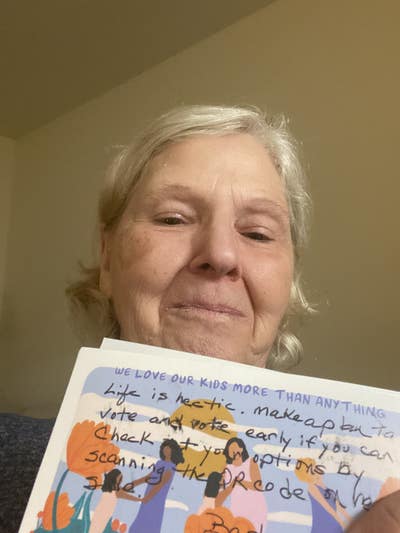 WE LOVE OUR KIDS MORE THAN ANYTHING
Life is hectic. make a plan to
vote and vote early if you can
Check out your options by
scanning the QR code on
side.